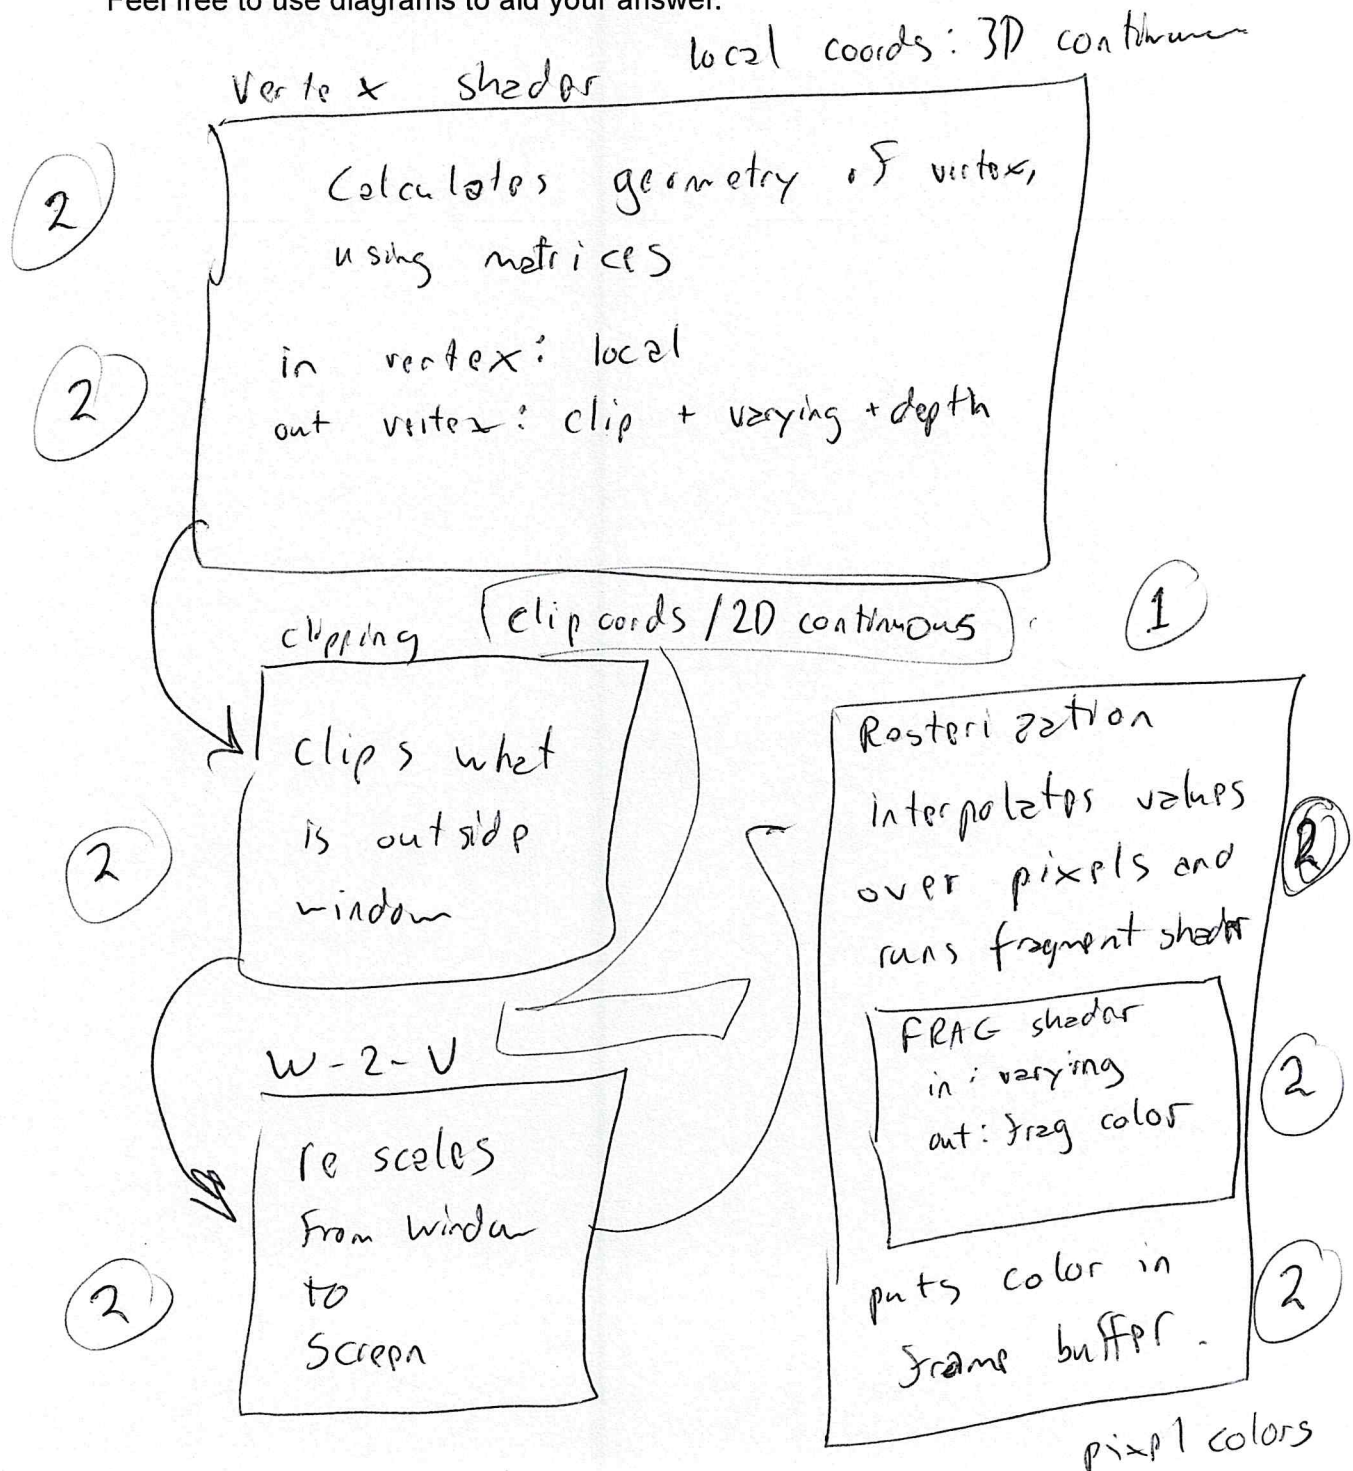 Feel free to use diagrams to aid your answer.
local coords: 3D continuous
Vertex shader
2
Calculates geometry of vertex,
using matrices
2
in vertex: local
out vertex: clip + varying + depth
clipping
clip cords / 2D continuous
1
2
clips what
is outside
window
W-2-V
2
rescales
from window
to
screen
Rasterization
interpolates values
over pixels and
runs fragment shader
2
FRAG shader
in: varying
out: frag color
2
puts color in
frame buffer.
2
pixel colors